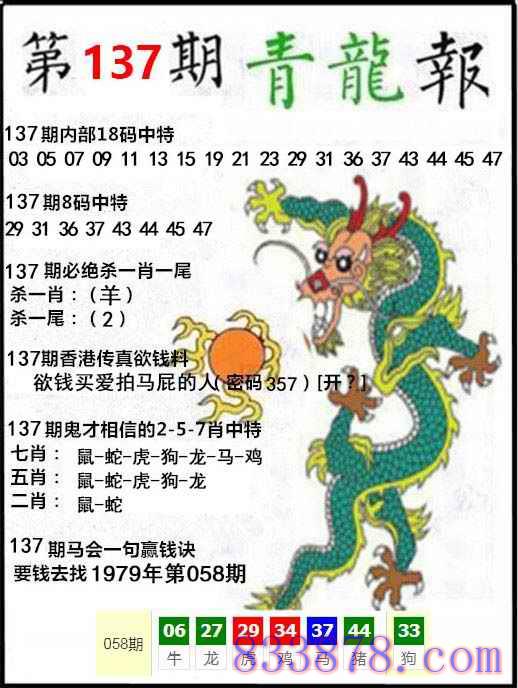 第137期青龍報
137期内部18码中特
03 05 07 09 11 13 15 19 21 23 29 31 36 37 43 44 45 47
137期8码中特
29 31 36 37 43 44 45 47
137期必绝杀一肖一尾
杀一肖：（羊）
杀一尾：（2）
137期香港传真欲钱料
欲钱买爱拍马屁的人（密码357）[开？]
137期鬼才相信的2-5-7肖中特
七肖： 鼠-蛇-虎-狗-龙-马-鸡
五肖： 鼠-蛇-虎-狗-龙
二肖： 鼠-蛇
137期马会一句赢钱诀
要钱去找1979年第058期
058期 06 27 29 34 37 44 33
牛 龙 虎 鸡 马 猪 狗
833878.com